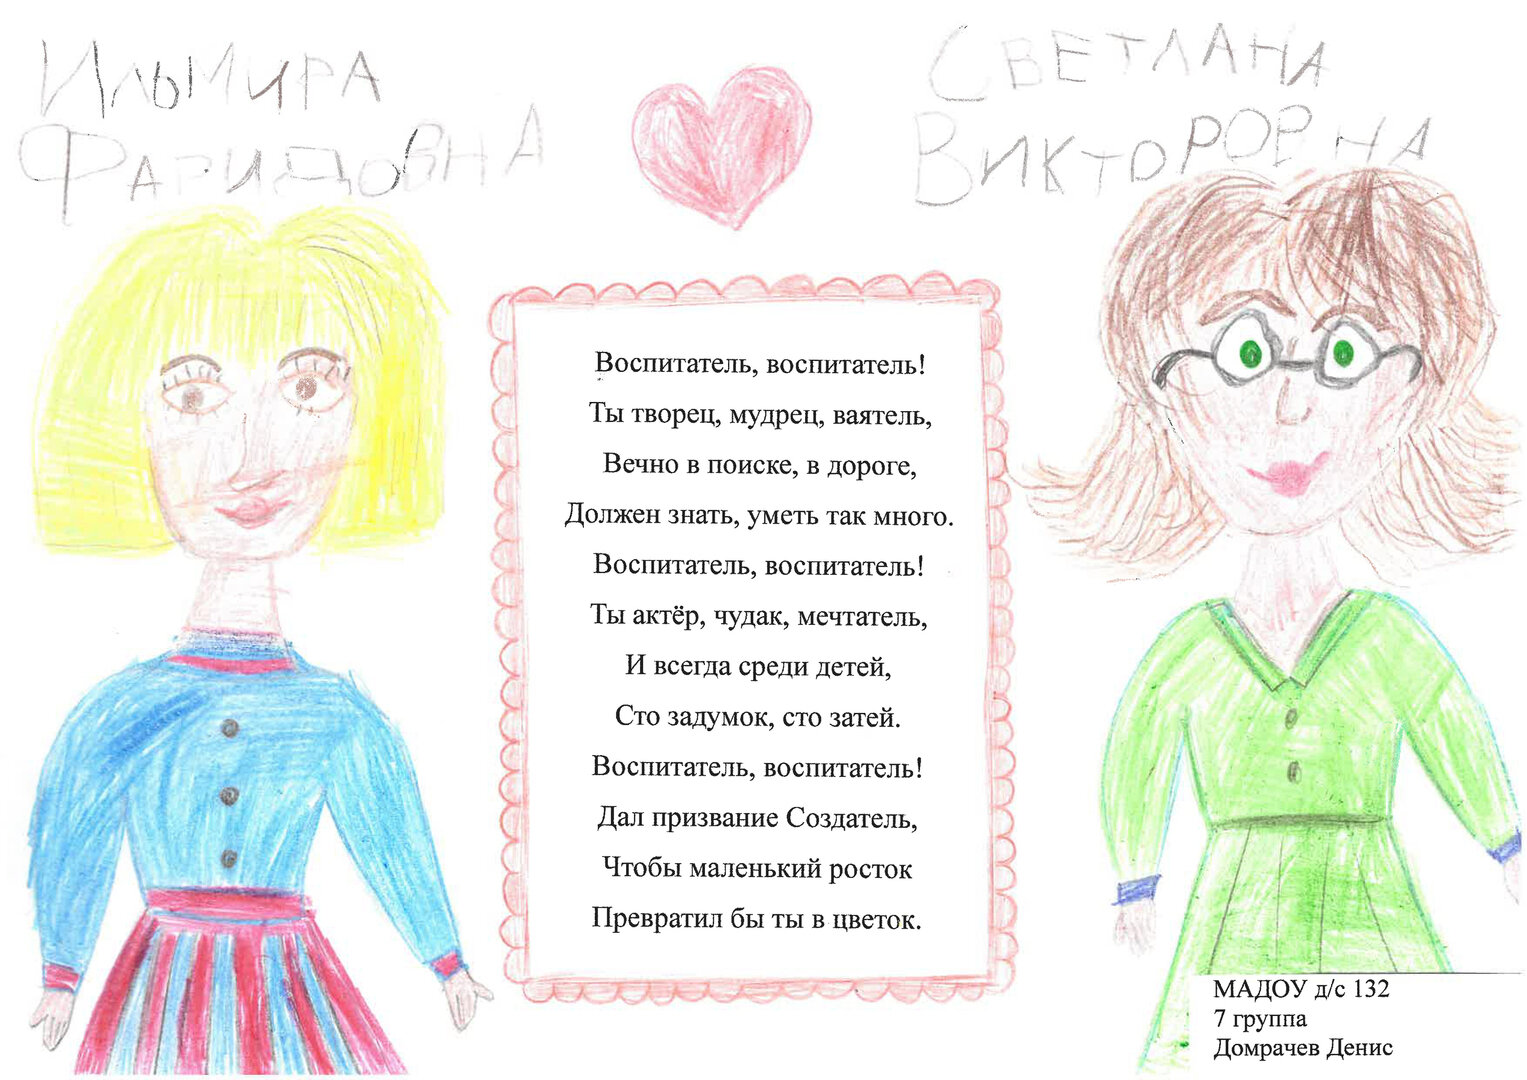 Ильмира
Фаридовна
Светлана
Викторовна
Воспитатель, воспитатель!
Ты творец, мудрец, ваятель,
Вечно в поиске, в дороге,
Должен знать, уметь так много.
Воспитатель, воспитатель!
Ты актёр, чудак, мечтатель,
И всегда среди детей,
Сто задумок, сто затей.
Воспитатель, воспитатель!
Дал призвание Создатель,
Чтобы маленький росток
Превратил бы ты в цветок.
МАДОУ д/с 132
7 группа
Домрачев Денис